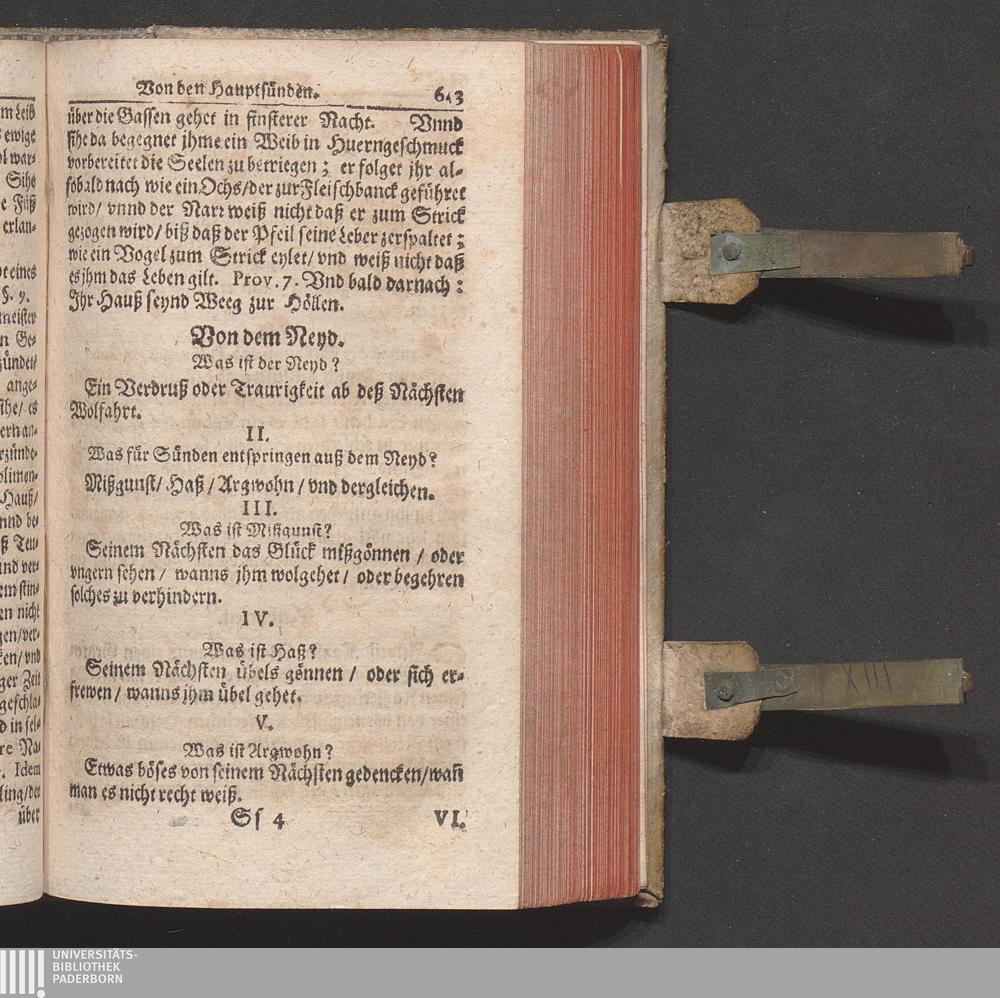 Von den Hauptsünden. 643
über die Gassen gehet in finsterer Nacht. Vnnd
sihe da begegnet jhme ein Weib in Huerngeschmuck
vorbereitet die Seelen zu betriegen; er folget jhr al-
sobald nach wie ein Ochs/der zur Fleischbanck geführet
wird/ vnnd der Narr weiß nicht daß er zum Strick
gezogen wird/ biß daß der Pfeil seine Leber zerspaltet;
wie ein Vogel zum Strick eylet/ vnd weiß nicht daß
es jhm das Leben gilt. Prov. 7. Vnd bald darnach:
Jhr Hauß seynd Weeg zur Höllen.
Von dem Neyd.
Was ist der Neyd?
Ein Verdruß oder Traurigkeit ab deß Nächsten
Wolfahrt.
II.
Was für Sünden entspringen auß dem Neyd?
Mißgunst/ Haß / Argwohn / vnd dergleichen.
III.
Was ist Mißgunst?
Seinem Nächsten das Glück mißgönnen / oder
vngern sehen / wanns jhm wolgehet / oder begehren
solches zu verhindern.
IV.
Was ist Haß?
Seinem Nächsten übels gönnen / oder sich er-
frewen / wanns jhm übel gehet.
V.
Was ist Argwohn?
Etwas böses von seinem Nächsten gedencken/wañ
man es nicht recht weiß.
Ss 4 VI.
XIII
UNIVERSITÄTS-
BIBLIOTHEK
PADERBORN